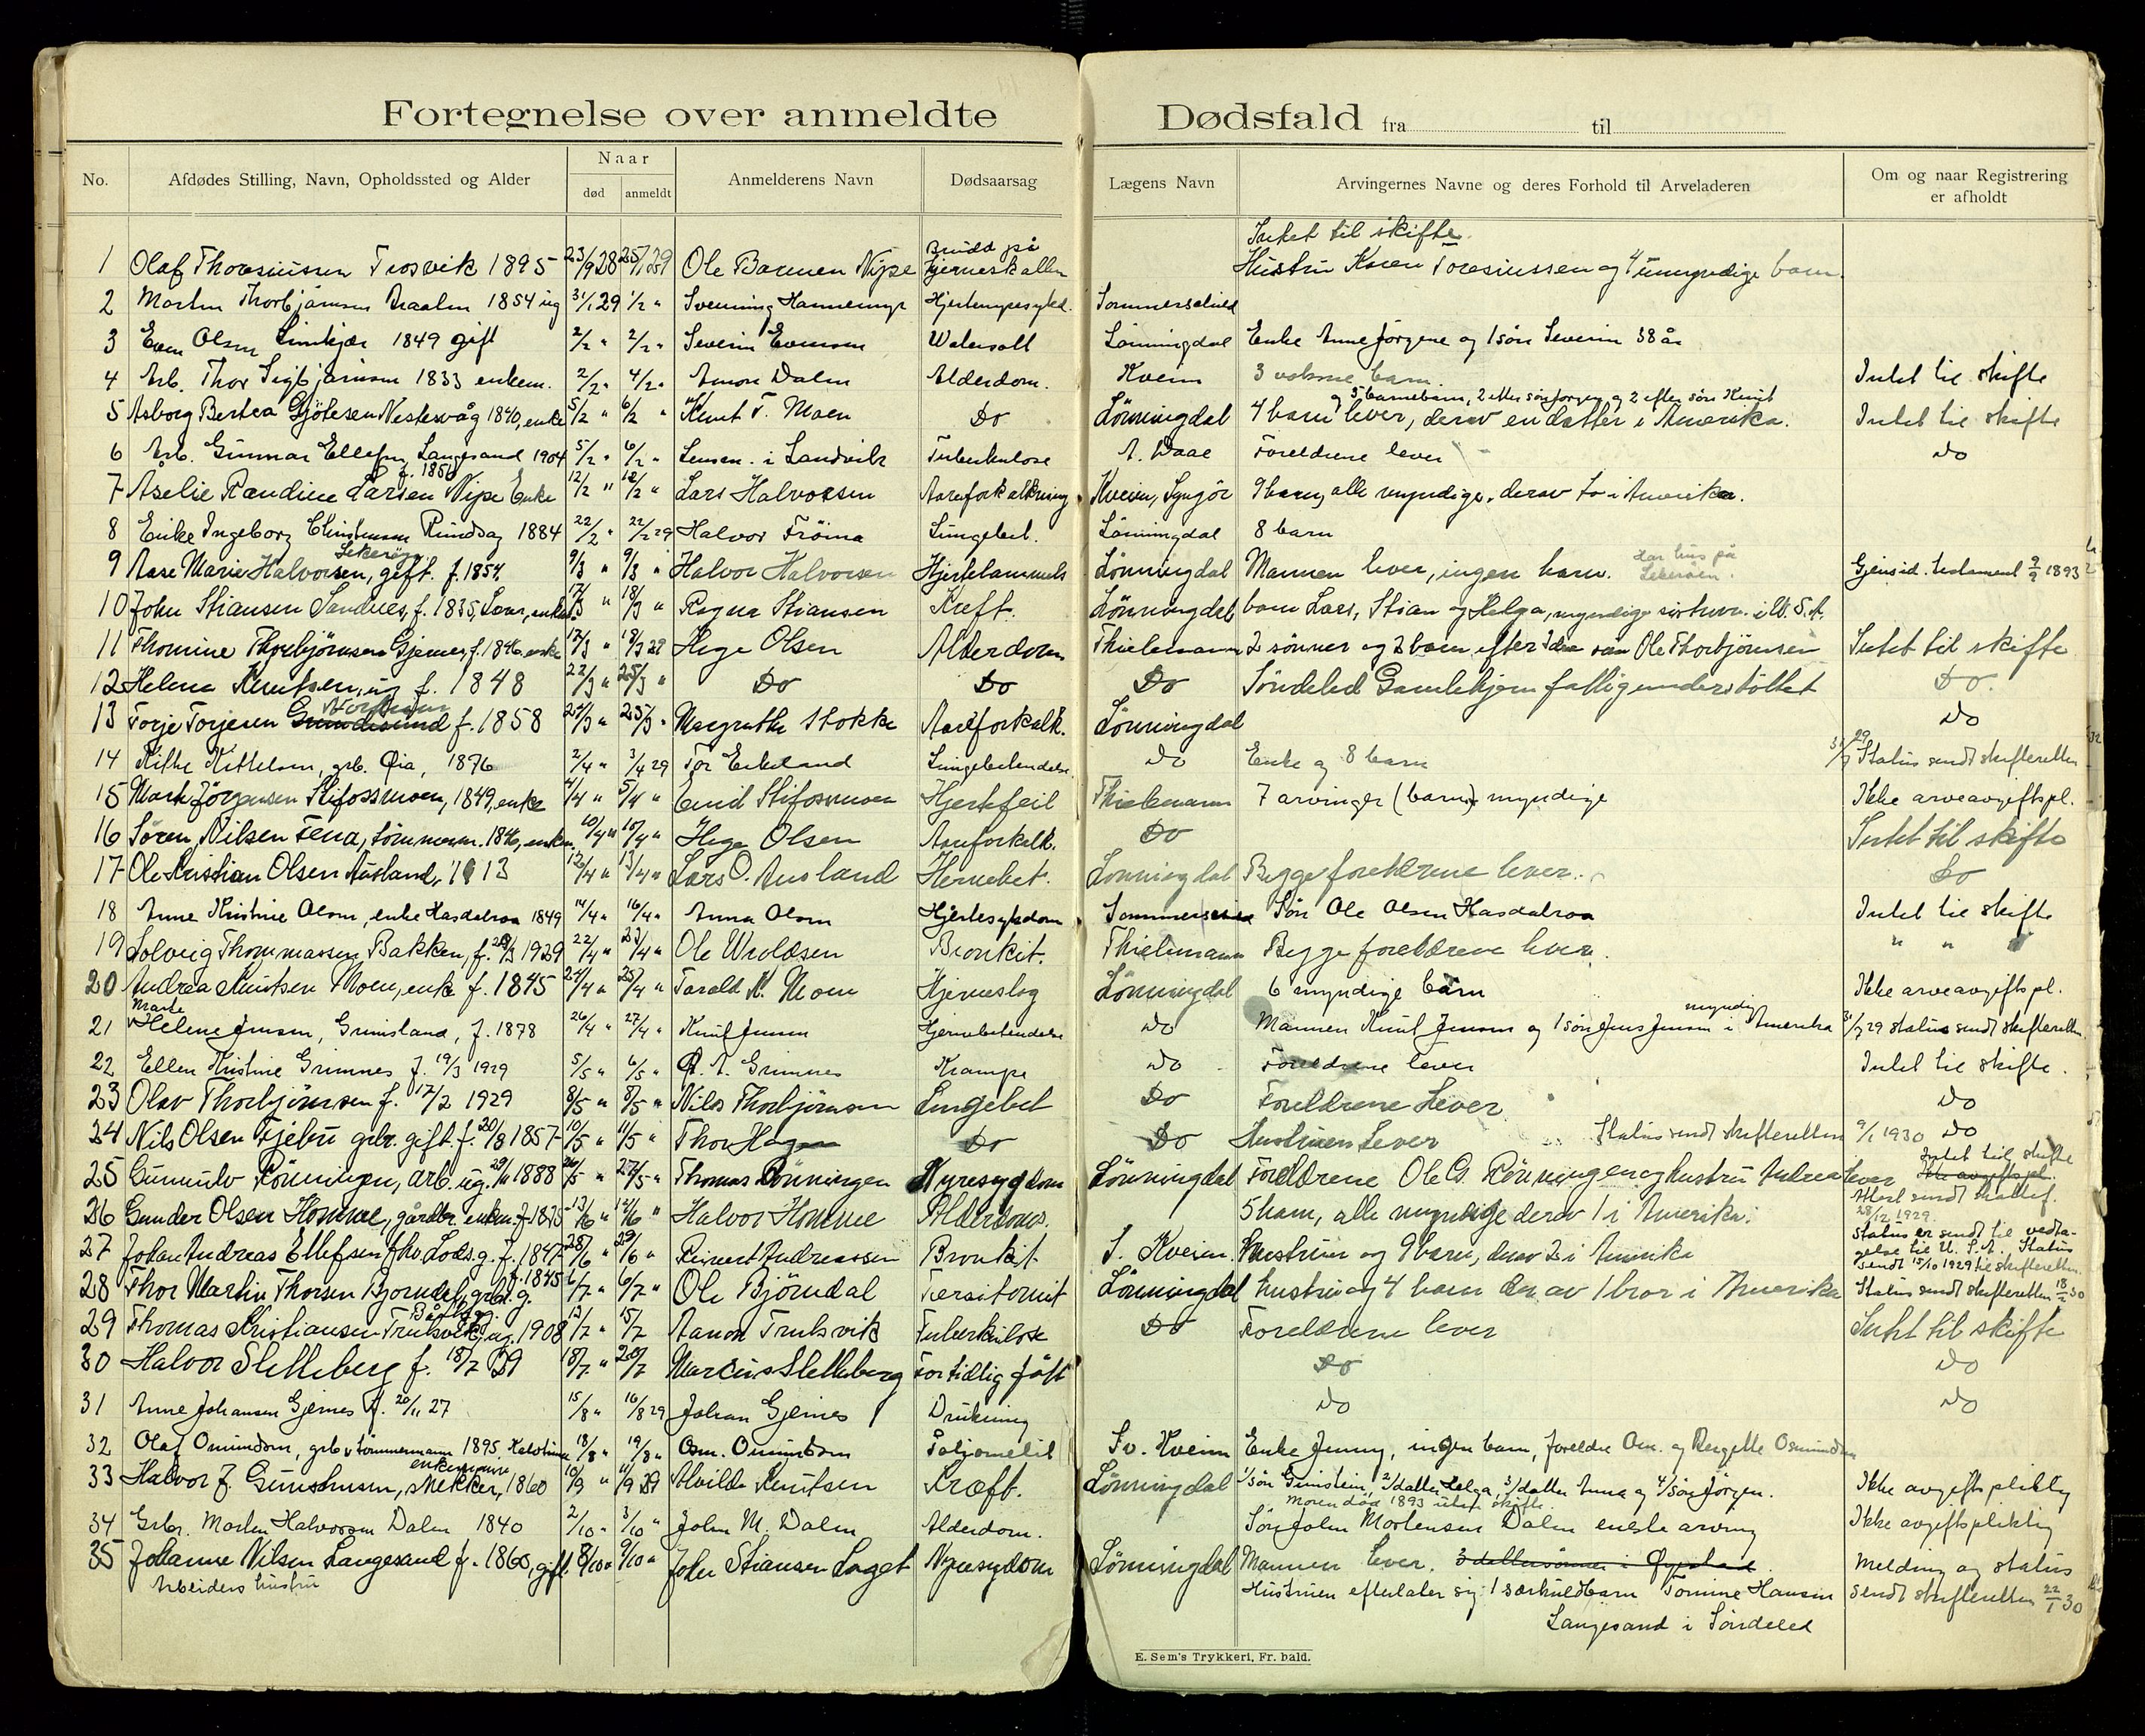 Fortegnelse over anmeldte Dødsfald fra til
No. Afdødes Stilling, Navn, Opholdssted og Alder Naar død anmeldt Anmelderens Navn Dødsaarsag Lægens Navn Arvingernes Navne og deres Forhold til Arveladeren Om og naar Registrering er afholdt
Brudd på Intet til skifte
1 Olaf Thoresiussen Trosvik 1895 23/9 28 25/1 29 Ole Barmen Nipe hjerneskallen Hustru Karen Toresiussen og 4 umyndige barn.
2 Morten Thorbjørnsen 1854 ug 31/1 29 1/2 " Svenning Hannemyr Sommerschield
3 Even Olsen Limkjær 1849 gift 2/2 " 2/2 " Severin Evensen Lönningdal Enke Anne Jörgine og 1 sön Severin 38 år
4 Arb. Thor Sigbjørnsen 1833 enkem. 2/2 " 4/2 " Amon Dalen Alderdom. Kveim 3 voksne barn. Intet til skifte
og 5 barnebarn, 2 efter sön Jörgen og 2 efter sön Knut
5 Asborg Bertea Gjötesen Nestesvåg 1840, enke 5/2 " 6/2 " Knut T. Moen Do Lönningdal 4 barn lever, derav en datter i Amerika. Intet til skifte
6 Arb. Gunnar Ellefsen Langesand 1904 5/2 " 6/2 " Lensm. i Landvik Tuberkulose A. Daae Foreldrene lever Do
f. 1856
7 Aselie Randine Larsen Nipe Enke 12/2 " 12/2 " Lars Halvorsen Aareforkalkning Kveim, Lyngör 9 barn, alle myndige, derav to i Amerika.
8 Enke Ingeborg Christensen Rundsag 1884 22/2 " 22/2 29 Halvor Fröina Lungebet. Lönningdal 8 barn
Lekeröya Har hus på
9 Aase Marie Halvorsen, gift. f. 1854. 9/3 " 9/3 " Halvor Halvorsen Hjertelammels Lönningdal Mannen lever, ingen barn. Lekeröen. Gjensid. testament 9/9 1893
10 John Stiansen Sandnes, f. 1835, enkem. 17/3 " 18/3 " Ragna Stiansen Kreft. Lönningdal barn Lars, Stian og Helga, myndige i U.S.A.
11 Thomine Thorbjörnsen Gjernes, f. 1846, enke 17/3 " 18/3 29 Hege Olsen Alderdom Thielemann 2 sönner og 2 barn efter sön Ole Thorbjörnsen Intet til skifte
12 Helena Knutsen, ug f. 1848 22/3 " 25/3 " Do Do Do Söndeled Gamlehjem fattigunderstöttet Do.
13 Torje Torjesen Grundesund f. 1858 24/3 " 25/3 " Margrethe Stokke Aareforkalk. Lönningdal Do
14 Kittelsen, grb. Øia, 1876 2/4 " 3/4 29 Tor Eikeland Lungebetendelse Do Enke og 8 barn 31/7 29 Status sendt skifteretten
15 Marte Jörgensen Stifossmoen, 1849, enke 4/4 " 5/4 " Emil Stifossmoen Hjertefeil Thielemann 7 arvinger (barn) myndige Ikke arveavgiftspl.
16 Sören Nilsen Fena, tömmerm. 1846, enkem. 10/4 " 10/4 " Hege Olsen Aareforkalk. Do Intet til skifte
17 Ole Kristian Olsen Ausland, 1913 12/4 " 13/4 " Lars O. Ausland Hernebet. Lönningdal Begge foreldrene lever. Do
18 Anne Kristine Olsen, enke Hasdalraa 1849 14/4 " 16/4 " Anna Olsen Hjertesykdom Sommerschield Sön Ole Olsen Hasdalraa Intet til skifte
19 Solveig Thommassen Bakken, f. 29/3 1929 22/4 " 23/4 " Ole Uvdæsen Bronkit. Thielemann Begge foreldrene lever. " " "
20 Andrea Knutsen Moen, enke f. 1845 24/4 " 25/4 " Torald K. Moen Hjerneslag Lönningdal 6 myndige barn Ikke arveavgiftspl.
Marte myndig
21 Helene Jensen, Grimsland, f. 1878 26/4 " 27/4 " Knut Jensen Hjernebetendelse Do Mannen Knut Jensen og 1 sön Jens Jensen i Amerika 31/7 29 status sendt skifteretten
22 Ellen Kristine Grimnes f. 19/3 1929 5/5 " 6/5 " A. Grimnes Krampe Do Foreldrene lever Intet til skifte.
23 Olav Thorbjörnsen f. 17/2 1929 8/5 " 8/5 " Nils Thorbjörnsen Lungebet Do Foreldrene Lever Do
24 Nils Olsen Fjebu grbr. gift. f. 20/8 1857 10/5 " 11/5 " Thor Hagen Do Do Hustruen Lever Status sendt skifteretten 9/1 1930 Do
Intet til skifte
25 Gunnulv Rönningen, arb. ug. 29/11 1888 26/5 " 27/5 " Thomas Rönningen Nyresygdom Lönningdal Foreldrene Ole G. Rönningen og hustru Andrea lever Ikke avgiftspl.
26 Gunder Olsen Homme, gårdbr. enkem. 13/6 " 14/6 " Halvor Homme Alderdoms. 5 barn, alle myndige derav 1 i Amerika. sendt skattef. 28/12 1929.
27 Johan Andreas Ellefsen fhv. Lods. g. f. 1847 28/6 " 29/6 " Reinert Andreassen Bronkit S. Kveim Hustrun og 9 barn, derav 2 i Amerika Status er sendt til vedtagelse til U.S.A. Status sendt 15/10 1929 til skifteretten.
f. 1845
28 Thor Martin Thorsen Bjorndal, grbr. g. 6/7 " 6/7 " Ole Björndal Lönningdal hustru og 4 barn der av 1 bror i Amerika Status sendt skifteretten 18/2 30
29 Thomas Kristiansen Trulsvik, ug. 1908 12/7 " 15/7 Aanon Trulsvik Tuberkulose Do Foreldrene lever Intet til skifte
30 Halvor Slelleberg f. 18/7 29 18/7 " 20/7 Marcius Slelleberg For tidlig født Do Do
31 Anne Johansen Gjernes f. 20/11 27 15/8 " 16/8 29 Johan Gjernes Drukning Do Do
32 Olaf Omundsen, grb. v tömmermann 1895, 18/8 " 19/8 " Osm. Omundsen Sv. Kveim Enke Jenny, ingen barn, foreldre Om. og Bergitte Osmundsen
enkemann
33 Halvor J. Gunstensen, snekker, 1860 10/9 " 11/9 29 Alvilde Knutsen Kræft. Lönningdal 1/ sön Gunstein, 2/ datter Helga, 3/ datter Anna og 4/ sön Jörgen. Ikke avgiftspliktig
Moren död 1893 uten skifte.
34 Grbr. Morten Halvorsen Dalen 1840 2/10 " 3/10 " John M. Dalen Alderdom. Sön John Mortensen Dalen eneste arving Ikke avgiftspliktig
35 Johanne Nilsen Langesand f. 1860, gift 8/10 " 9/10 " John Stiansen Laget Nyresydom Lönningdal Mannen lever. 3 dattersönner i Øyestad Melding og status
Arbeiders hustru Hustruen efterlater sig 1 særkuldbarn Tomine Hansen sendt skifteretten 22/1 30
Langesand i Söndeled
E. Sem's Trykkeri, Fr. hald.